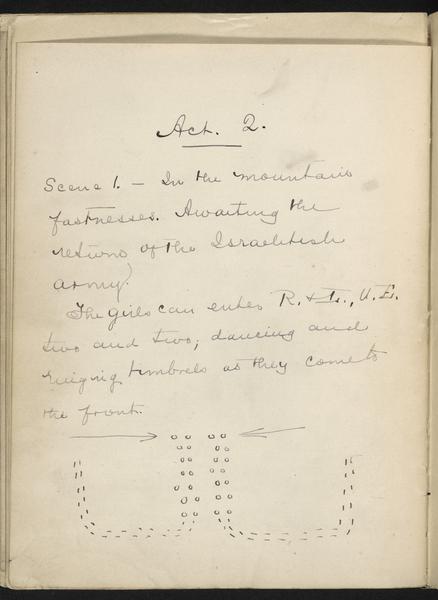 Act. 2.
Scene 1. — In the mountains
fastnesses. Awaiting the
returns of the Israelitish
army.
The girls can enter R. & L., U. E.
two and two; dancing and
ringing timbrels as they come to
the front.